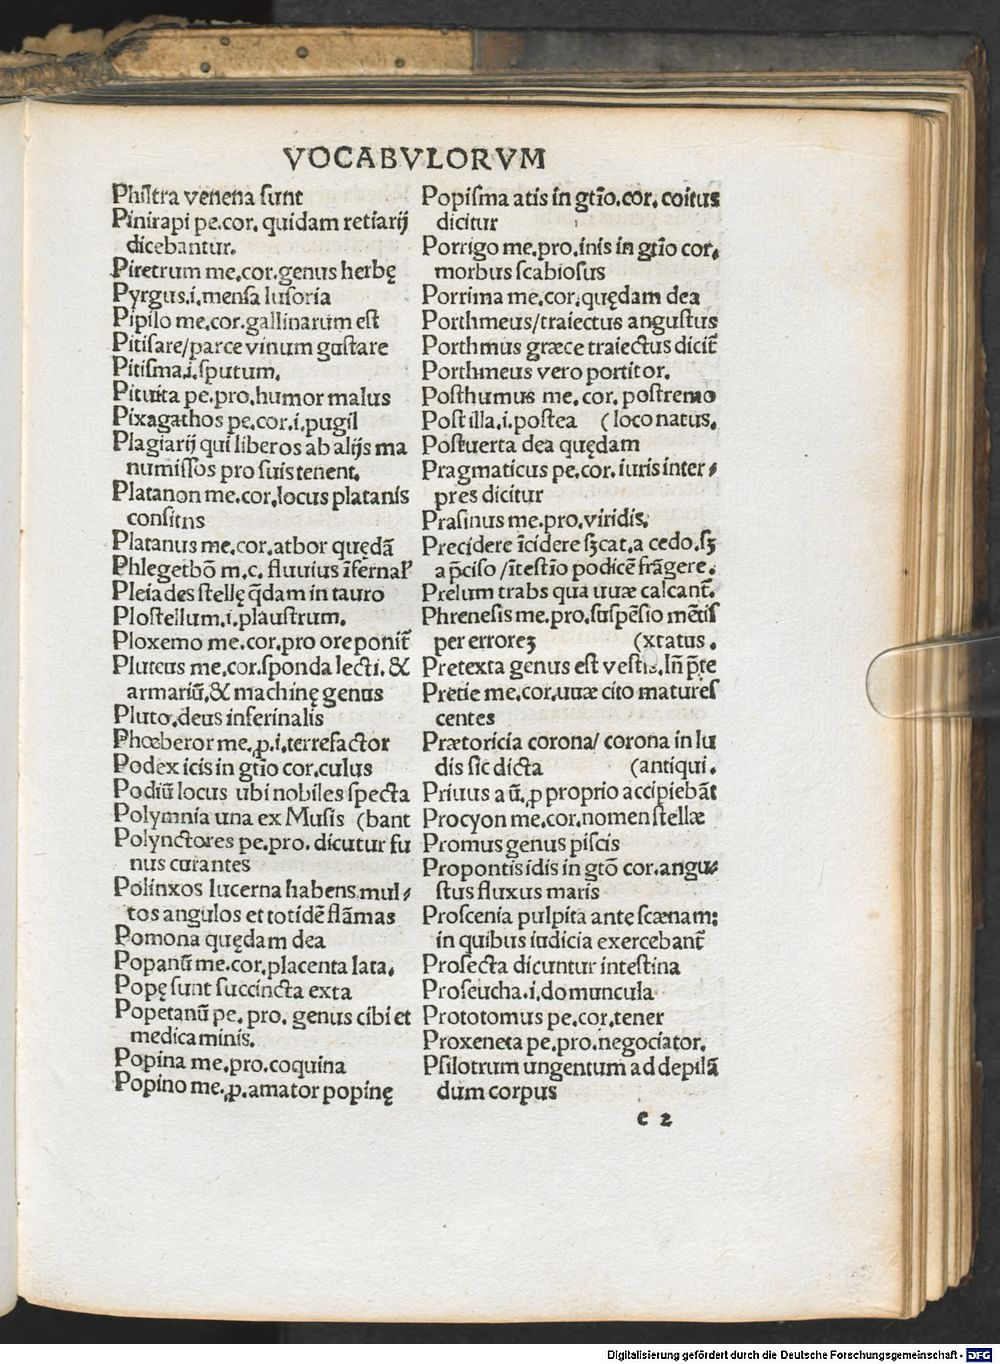 VOCABVLORVM
Philtra venena sunt
Pinirapi pe.cor. quidam retiarij
dicebantur.
Piretrum me.cor.genus herbę
Pyrgus.i.mensa lusoria
Pipilo me.cor.gallinarum est
Pitisare/parce vinum gustare
Pitisma.i.sputum.
Pituita pe.pro.humor malus
Pixagathos pe.cor.i.pugil
Plagiarij qui liberos ab alijs ma
numissos pro suis tenent.
Platanon me.cor.locus platanis
consitns
Platanus me.cor.atbor quędã
Phlegetbõ m.c. fluuius ĩfernal̕
Pleiades stellę q̃dam in tauro
Plostellum.i.plaustrum.
Ploxemo me.cor.pro ore ponit̃
Pluteus me.cor.sponda lecti. &
armariũ.& machinę genus
Pluto.deus inferinalis
Phœberor me.ꝓ.i.terrefactor
Podex icis in gtĩo cor.culus
Podiũ locus ubi nobiles specta
Polymnia una ex Musis (bant
Polynctores pe.pro. dicutur fu
nus curantes
Polinxos lucerna habens mul⸗
tos angulos et totidẽ flãmas
Pomona quędam dea
Popanũ me.cor.placenta lata.
Popę sunt succincta exta
Popetanũ pe. pro. genus cibi et
medicaminis.
Popina me.pro.coquina
Popino me.ꝓ.amator popinę
Popisma atis in gtĩo.cor. coitus
dicitur
Porrigo me.pro.inis in gtĩo cor.
morbus scabiosus
Porrima me.cor.quędam dea
Porthmeus/traiectus angustus
Porthmus græce traiectus dicit̃
Porthmeus vero portitor.
Posthumus me. cor. postremo
Post illa.i.postea (loco natus.
Postuerta dea quędam
Pragmaticus pe.cor. iuris inter⸗
pres dicitur
Prasinus me.pro.viridis.
Precidere ĩcidere sꝫcat.a cedo.sꝫ
a p̃ciso /ĩtestĩo podicẽ frãgere.
Prelum trabs qua uuæ calcant̃.
Phrenesis me.pro.suspẽsio mẽtis
per erroreꝫ (xtatus.
Pretexta genus est vestis.Iñ p̃te
Pretie me.cor.uuæ cito matures
centes
Prætoricia corona/ corona in lu
dis sic dicta (antiqui.
Priuus a ũ.ꝓ proprio accipiebãt
Procyon me.cor.nomen stellæ
Promus genus piscis
Propontis idis in gtõ cor.angu⸗
stus fluxus maris
Proscenia pulpita ante scænam:
in quibus iudicia exercebant̃
Prosecta dicuntur intestina
Proseucha.i.domuncula
Prototomus pe.cor.tener
Proxeneta pe.pro.negociator.
Psilotrum ungentum ad depilã
dum corpus
c 2
Digitalisierung gefördert durch die Deutsche Forschungsgemeinschaft - DFG